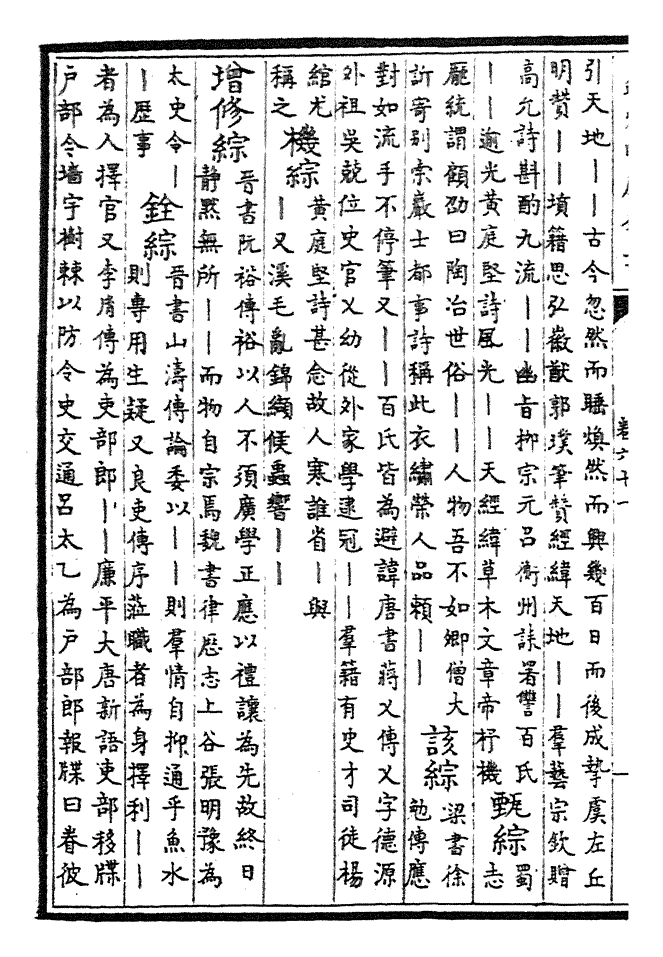 引天地——古今忽然而睡煥然而興幾百日而後成摯虞左丘
明贊——墳籍思弘徽猷郭璞筆贊經緯天地——羣藝宗欽贈
高允詩斟酌九流——幽旨柳宗元呂衡州誄署讐百氏
——逾光黃庭堅詩風光——天經緯草木文章帝杼機
甄綜
蜀
志
龎統謂顧劭曰陶冶世俗——人物吾不如卿僧大
訢寄别宗嚴士都事詩稱此衣繡榮人品頼——
該綜
梁書徐
勉傳應
對如流手不停筆又——百氏皆為避諱唐書蔣乂傳乂字德源
外祖吳兢位史官乂幼從外家學逮冠——羣籍有史才司徒楊
綰尤
稱之
機綜
黃庭堅詩甚念故人寒誰省—與
—又溪毛亂錦纈候蟲響——
增修綜
晉書阮裕傳裕以人不須廣學正應以禮讓為先故終日
静黙無所——而物自宗焉魏書律厯志上谷張明豫為
太史令—
—歴事
銓綜
晉書山濤傳論委以——則羣情自抑通乎魚水
則專用生疑又良吏傳序蒞職者為身擇利——
者為人擇官又李胤傳為吏部郎——廉平大唐新語吏部移牒
户部令墻宇樹棘以防令史交通呂太乙為户部郎報牒曰眷彼
卷六十一